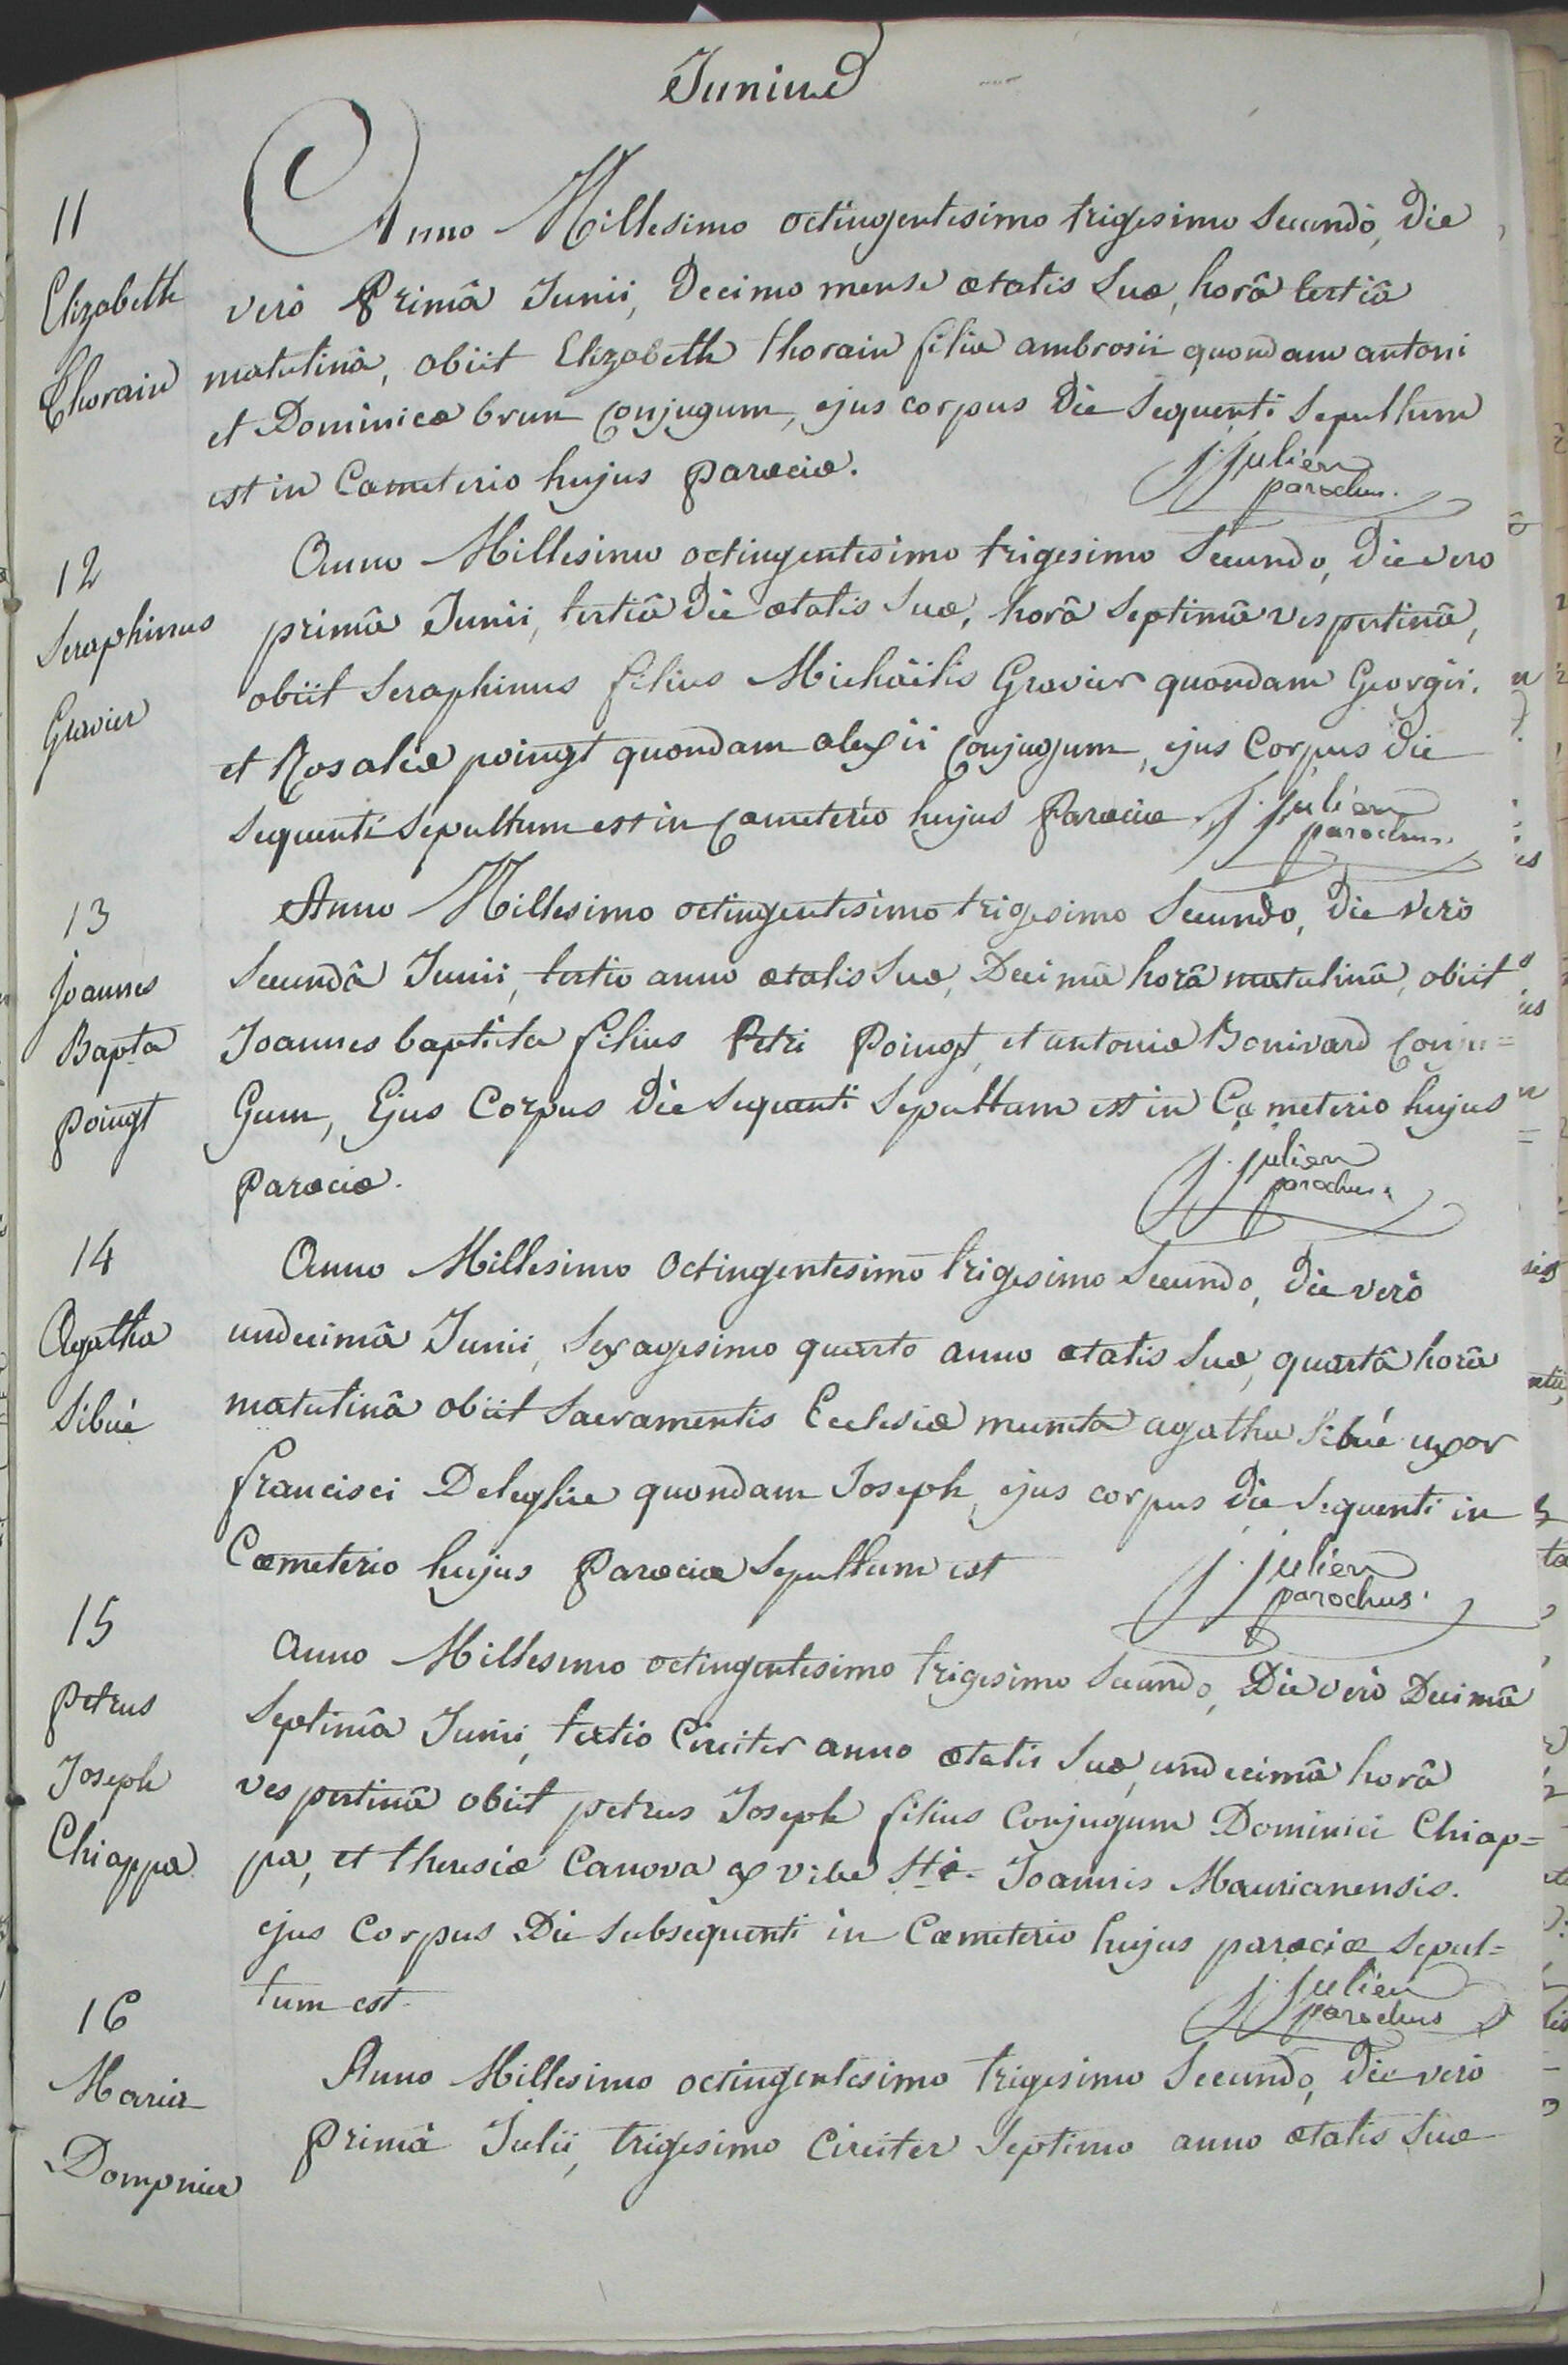 Junius
11
Elizabeth
Thorain
Anno Millesimo octingentesimo trigesimo secundò, Die
verò Primâ Junii, Decimo mense ætatis Suæ, horâ tertiâ
matutinâ, obiit Elizabeth thorain filia ambrosii quondam antoni
et Dominicæ brun conjugum, ejus corpus Die Sequenti Sepultum
est in Cœmeterio hujus Parœciæ.
j. julien
parochus.
12
Seraphinus
Gravier
Anno Millesimo octingentesimo trigesimo Secundo, Die vero
primâ Junii, tertiâ Die ætatis Suæ, horâ Septimâ vespertinâ,
obiit Seraphinus filius Michäelis Gravier quondam Georgii.
et Rosaliæ poingt quondam alexii conjugum, ejus Corpus Die
Sequenti Sepultum est in cœmeterio hujus Parœciæ
j. julien
parochus.
13
Joannes
Bapta
Poingt
Anno Millesimo octingentesimo trigesimo Secundo, Die Verò
Secundâ Junii, tertio anno ætatis Suæ, Decimâ horâ matutinâ, obiit
Joannes baptista filius Petri Poingt, et antoniæ Bonivard conju=
Gum, Ejus Corpus Die Sequenti Sepultum est in Cœmeterio hujus
Parœciæ.
j. julien
parochus.
14
Agatha
Sibué
Anno Millesimo Octingentesimo trigesimo Secundo, Die verò
undecimâ Junii, Sexagesimo quarto anno ætatis Suæ, quartâ horâ
matutinâ obiit Sacramentis Ecclesiæ munita agatha Sibué uxor
francisci Deleglise quondam Joseph, ejus corpus Die Sequenti in
Cœmeterio hujus Parœciæ Sepultum est
j. julien
parochus.
15
Petrus
Joseph
Chiappa
Anno Millesimo octingentesimo trigesimo Secundo, Die verò Decimâ
Septimâ Junii, tertio Circiter anno ætatis Suæ, undecimâ horâ
vespertinâ obiit petrus Joseph filius Conjugum Dominici Chiap=
pa, et theresiæ Canova ex urbe Sti Joannis Maurianensis.
ejus Corpus Die Subsequenti in Cœmeterio hujus parœciæ Sepul=
tum est.
j. julien
parochus
16
Maria
Dompnier
Anno Millesimo octingentesimo trigesimo Secundo, Die verò
Primâ Julii, trigesimo Circiter Septimo anno ætatis Suæ